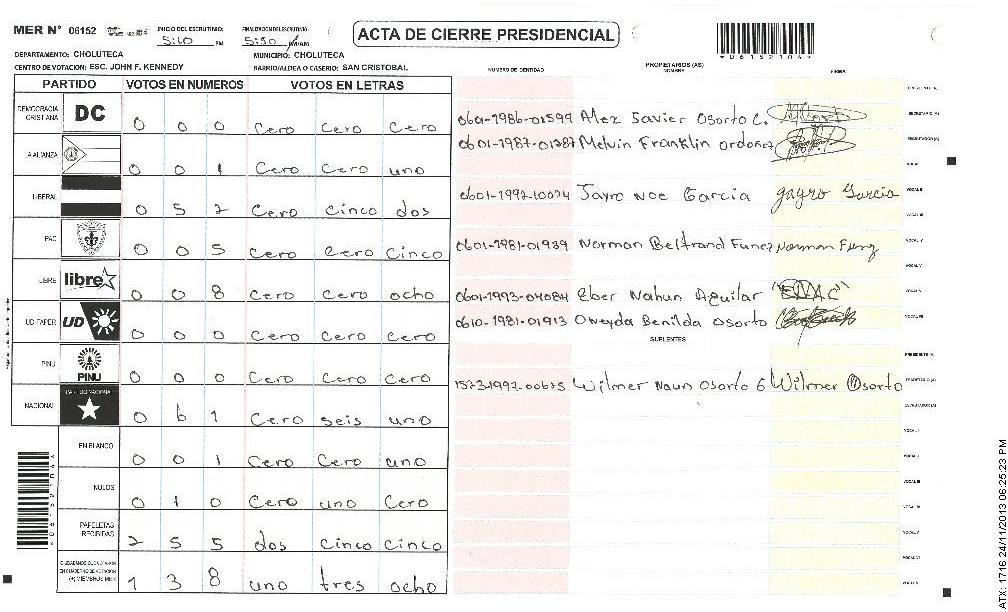 MER N° 06152 INICIO DEL ESCRUTINIO: 5:10 PM FINALIZACION DEL ESCRUTINIO: 5:50 PM/AM ACTA DE CIERRE PRESIDENCIAL
DEPARTAMENTO: CHOLUTECA MUNICIPIO: CHOLUTECA
CENTRO DE VOTACION: ESC. JOHN F. KENNEDY BARRIO/ALDEA O CASERIO: SAN CRISTOBAL
NUMERO DE IDENTIDAD PROPIETARIOS (AS) NOMBRE FIRMA
PARTIDO VOTOS EN NUMEROS VOTOS EN LETRAS
DEMOCRACIA CRISTIANA DC 0 0 0 Cero Cero Cero
LA ALIANZA 0 0 1 Cero Cero uno
LIBERAL 0 5 2 Cero Cinco dos
PAC 0 0 5 Cero Cero Cinco
LIBRE libre 0 0 8 Cero Cero ocho
UD-FAPER UD 0 0 0 Cero Cero Cero
PINU PINU 0 0 0 Cero Cero Cero
NACIONAL PARTIDO NACIONAL 0 6 1 Cero seis uno
EN BLANCO 0 0 1 Cero Cero uno
NULOS 0 1 0 Cero uno Cero
PAPELETAS RECIBIDAS 2 5 5 dos Cinco Cinco
(+) MIEMBROS MER 1 3 8 uno tres ocho
0601-1986-01599 Alex Javier Osorto C.
0601-1987-01287 Melvin Franklin Ordoñez
0601-1992-10074 Jayro Noe Garcia gayro Garcia
0601-1981-01939 Norman Beltrand Funez Norman Funz
0601-1993-04084 Eber Nahun Aguilar
0610-1981-01913 Oneyda Benilda Osorto
SUPLENTES
1523-1992-00675 Wilmer Naun Osorto G Wilmer Osorto
PRESIDENTE (A)
SECRETARIO (A)
ESCRUTADOR (A)
VOCAL I
VOCAL II
VOCAL III
VOCAL IV
VOCAL V
*06152104*
ATX: 1716 24/11/2013 06:25:23 PM